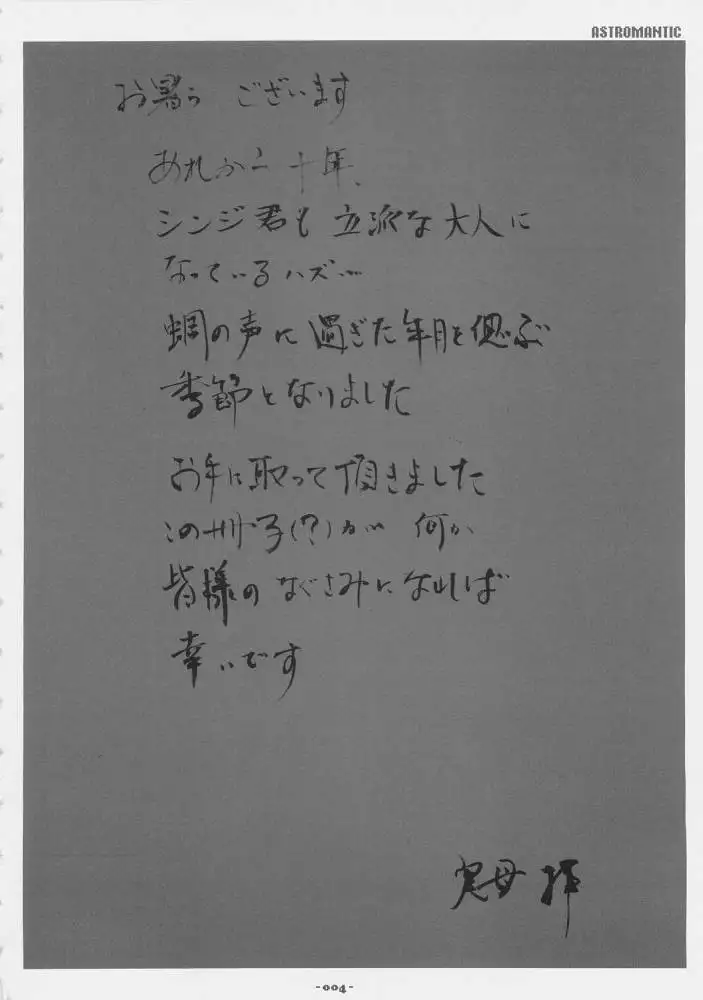 ASTROMANTIC
お暑うございます
あれから十年、
シンジ君も立派な大人に
なっているハズ…
蜩の声に過ぎた年月を偲ぶ
季節となりました
お手に取って頂きました
この冊子(?)が 何か
皆様のなぐさみになれば
幸いです
拝
-004-